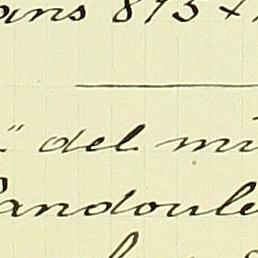 ans 873 +
" del mi
andoule